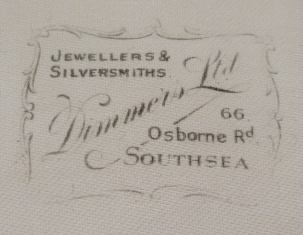 JEWELLERS &
SILVERSMITHS.
Dimmers Ltd
66.
Osborne Rd
SOUTHSEA